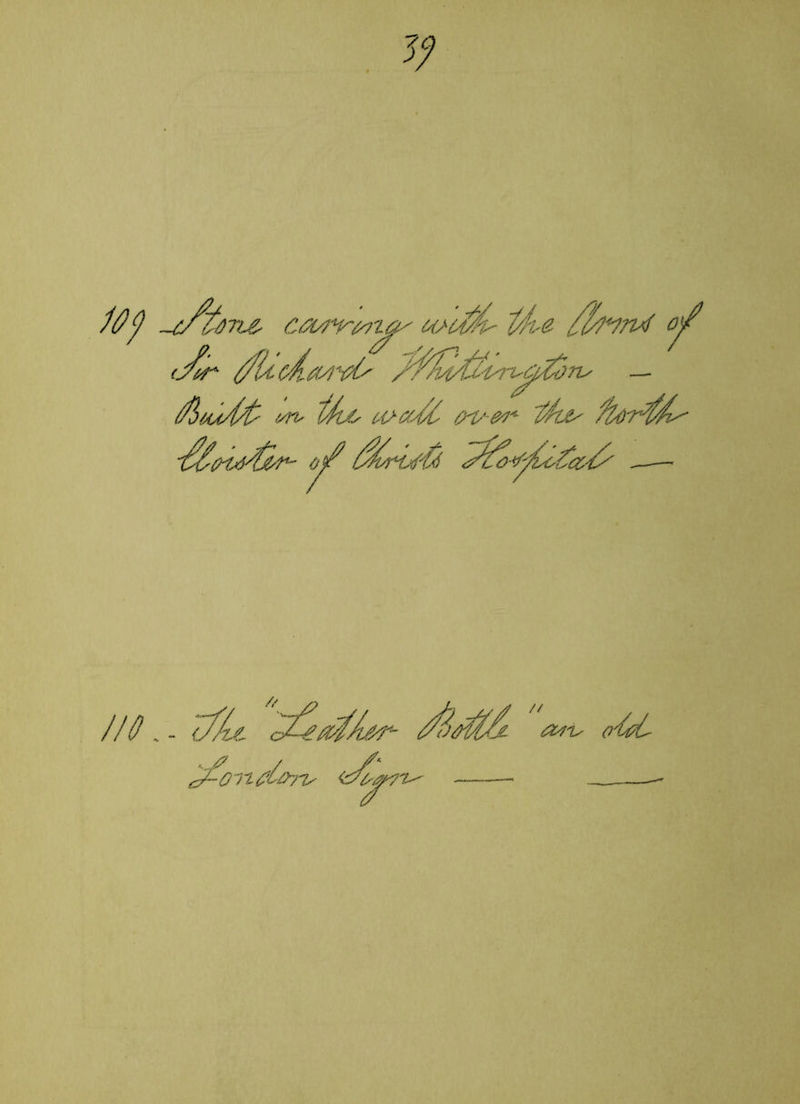 39
109 Stone carving with the Arms of
Sir Richard Whittington —
Built in the wall over the North
Cloister of Christs Hospital —
110. - The "Leather Bottle" an old
London Sign — —